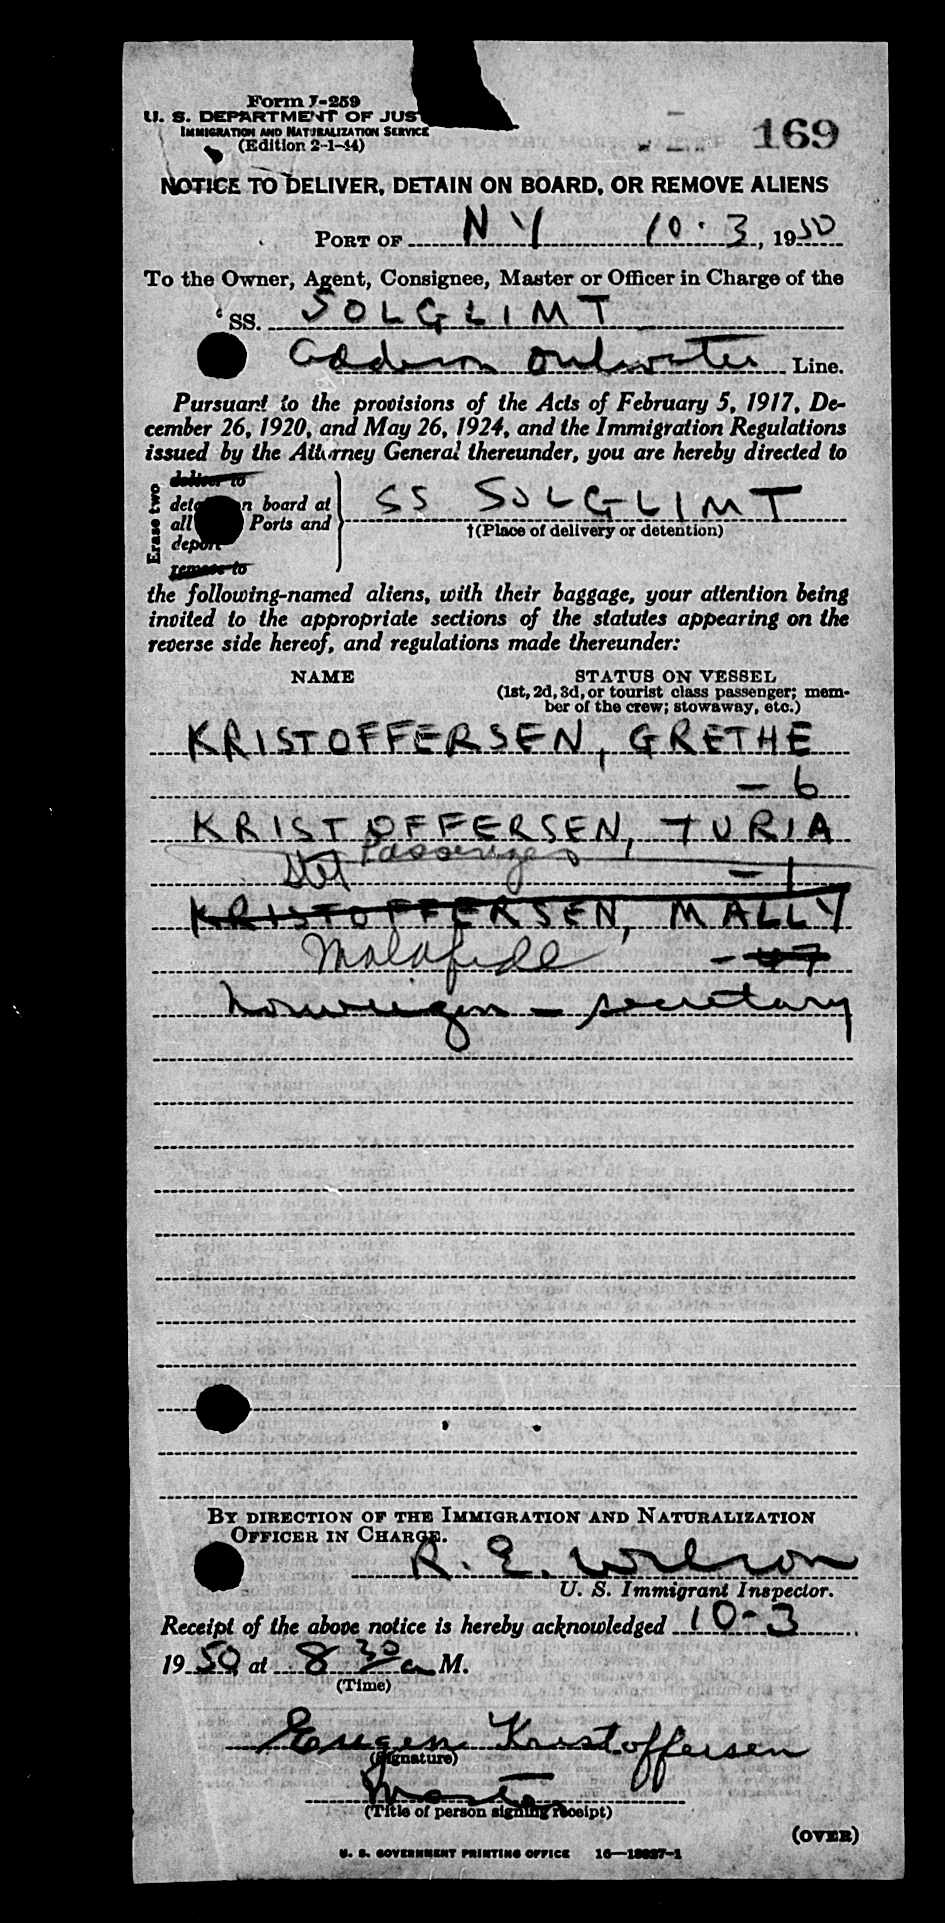 Form I-259
U. S. DEPARTMENT OF JUS
IMMIGRATION AND NATURALIZATION SERVICE
(Edition 2-1-44)
169
NOTICE TO DELIVER, DETAIN ON BOARD, OR REMOVE ALIENS
PORT OF N Y 10-3, 1950
To the Owner, Agent, Consignee, Master or Officer in Charge of the
SS. SOLGLIMT
Line.
Pursuant to the provisions of the Acts of February 5, 1917, De-
cember 26, 1920, and May 26, 1924, and the Immigration Regulations
issued by the Attorney General thereunder, you are hereby directed to
Erase two
deliver to
detain on board at
all Ports and
deport
remove to
SS SOLGLIMT
†(Place of delivery or detention)
the following-named aliens, with their baggage, your attention being
invited to the appropriate sections of the statutes appearing on the
reverse side hereof, and regulations made thereunder:
NAME STATUS ON VESSEL
(1st, 2d, 3d, or tourist class passenger; mem-
ber of the crew; stowaway, etc.)
KRISTOFFERSEN, GRETHE
- 6
KRISTOFFERSEN, TURIA
Stet Passenger - 1
KRISTOFFERSEN, MALLY
Malafide - 47
Norweigen - secretary
BY DIRECTION OF THE IMMIGRATION AND NATURALIZATION
OFFICER IN CHARGE.
R. E. Wilson
U. S. Immigrant Inspector.
Receipt of the above notice is hereby acknowledged 10-3
1950, at 8 30 a M.
(Time)
Eugen Kristoffersen
(Signature)
Master
(Title of person signing receipt)
(OVER)
U. S. GOVERNMENT PRINTING OFFICE 16—18327-1